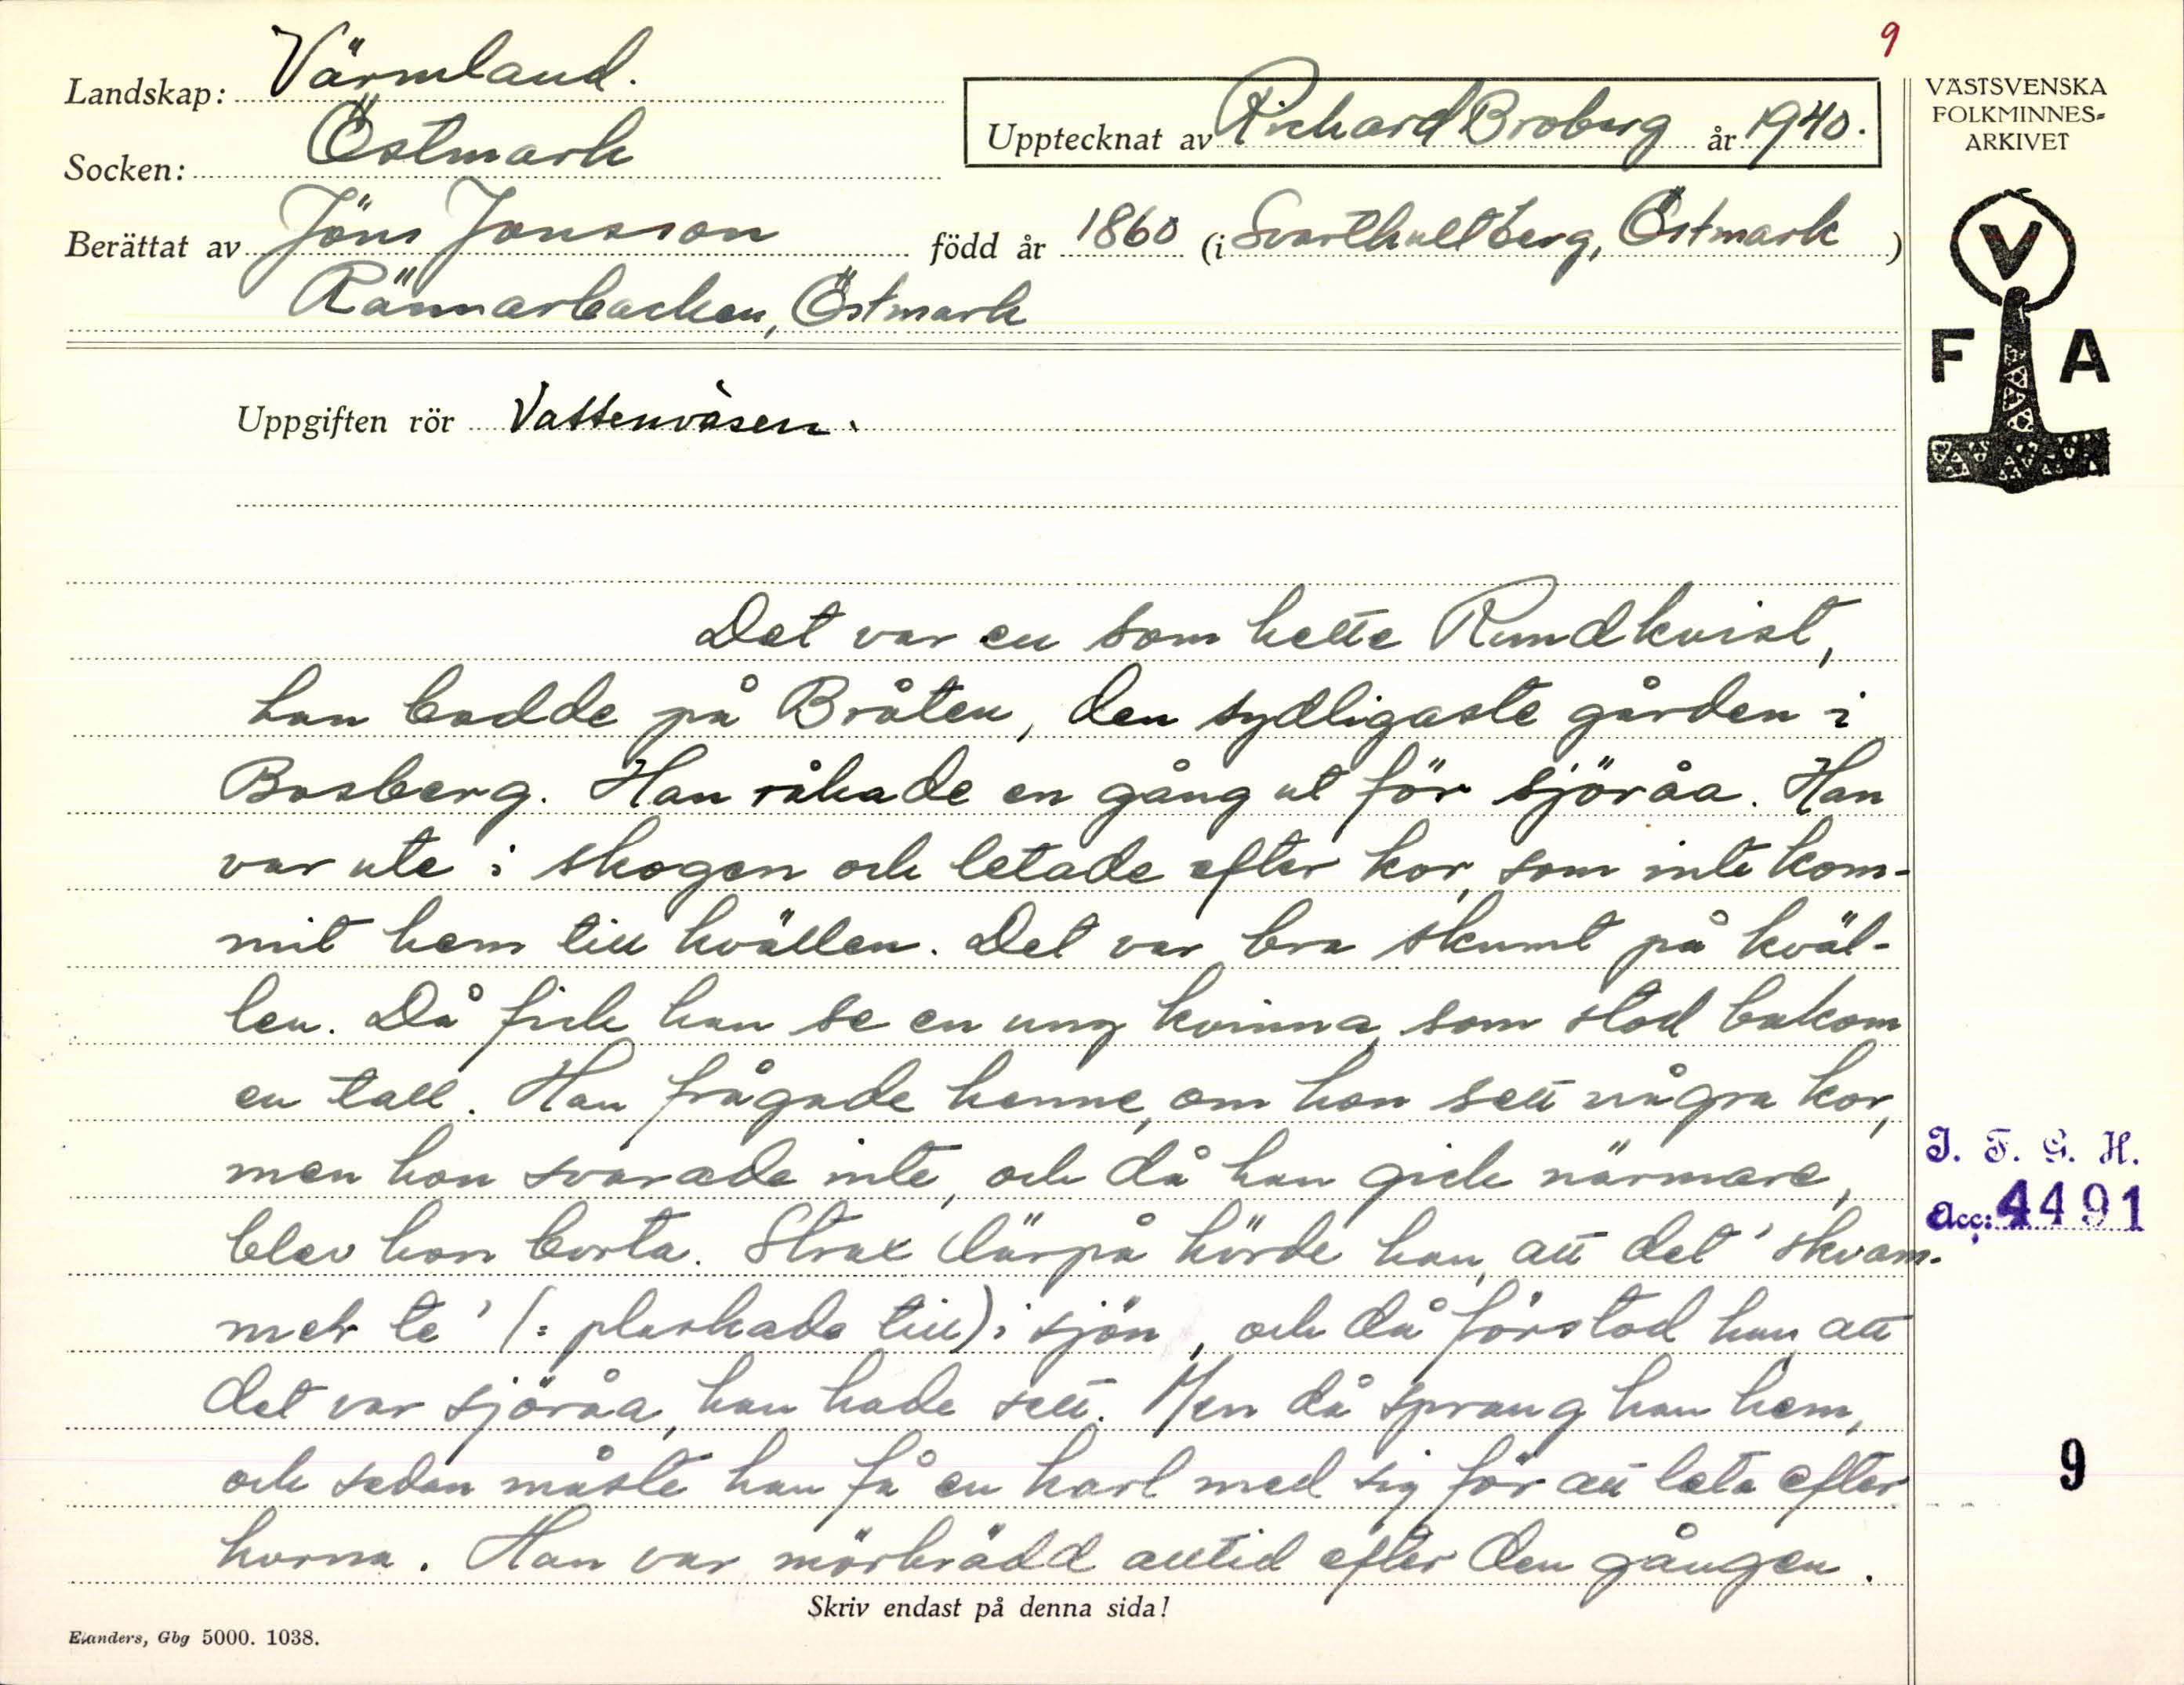 9
Landskap: Värmland.
Socken: Östmark
Upptecknat av Richard Broberg år 1940.
Berättat av Jöns Jonsson född år 1860 (i Svarthultberg, Östmark)
Rännarbacken, Östmark
VÄSTSVENSKA
FOLKMINNES-
ARKIVET
V
F A
Uppgiften rör Vattenväsen.
Det var en som hette Rundkvist,
han bodde på Bråten, den sydligaste gården i
Bosberg. Han råkade en gång ut för sjöråa. Han
var ute i skogen och letade efter kor, som inte kom-
mit hem till kvällen. Det var bra skumt på kväl-
len. Då fick han se en ung kvinna, som stod bakom
en tall. Han frågade henne, om hon sett några kor,
men hon svarade inte, och då han gick närmare,
blev hon borta. Strax därpå hörde han, att det 'skvam-
meh te' (= plaskade till) i sjön, och då förstod han, att
det var sjöråa, han hade sett. Men då sprang han hem,
och sedan måste han få en karl med sig för att leta efter
korna. Han var mörkrädd alltid efter den gången.
J. F. G. H.
Acc: 4491
9
Skriv endast på denna sida!
Elanders, Gbg 5000. 1038.